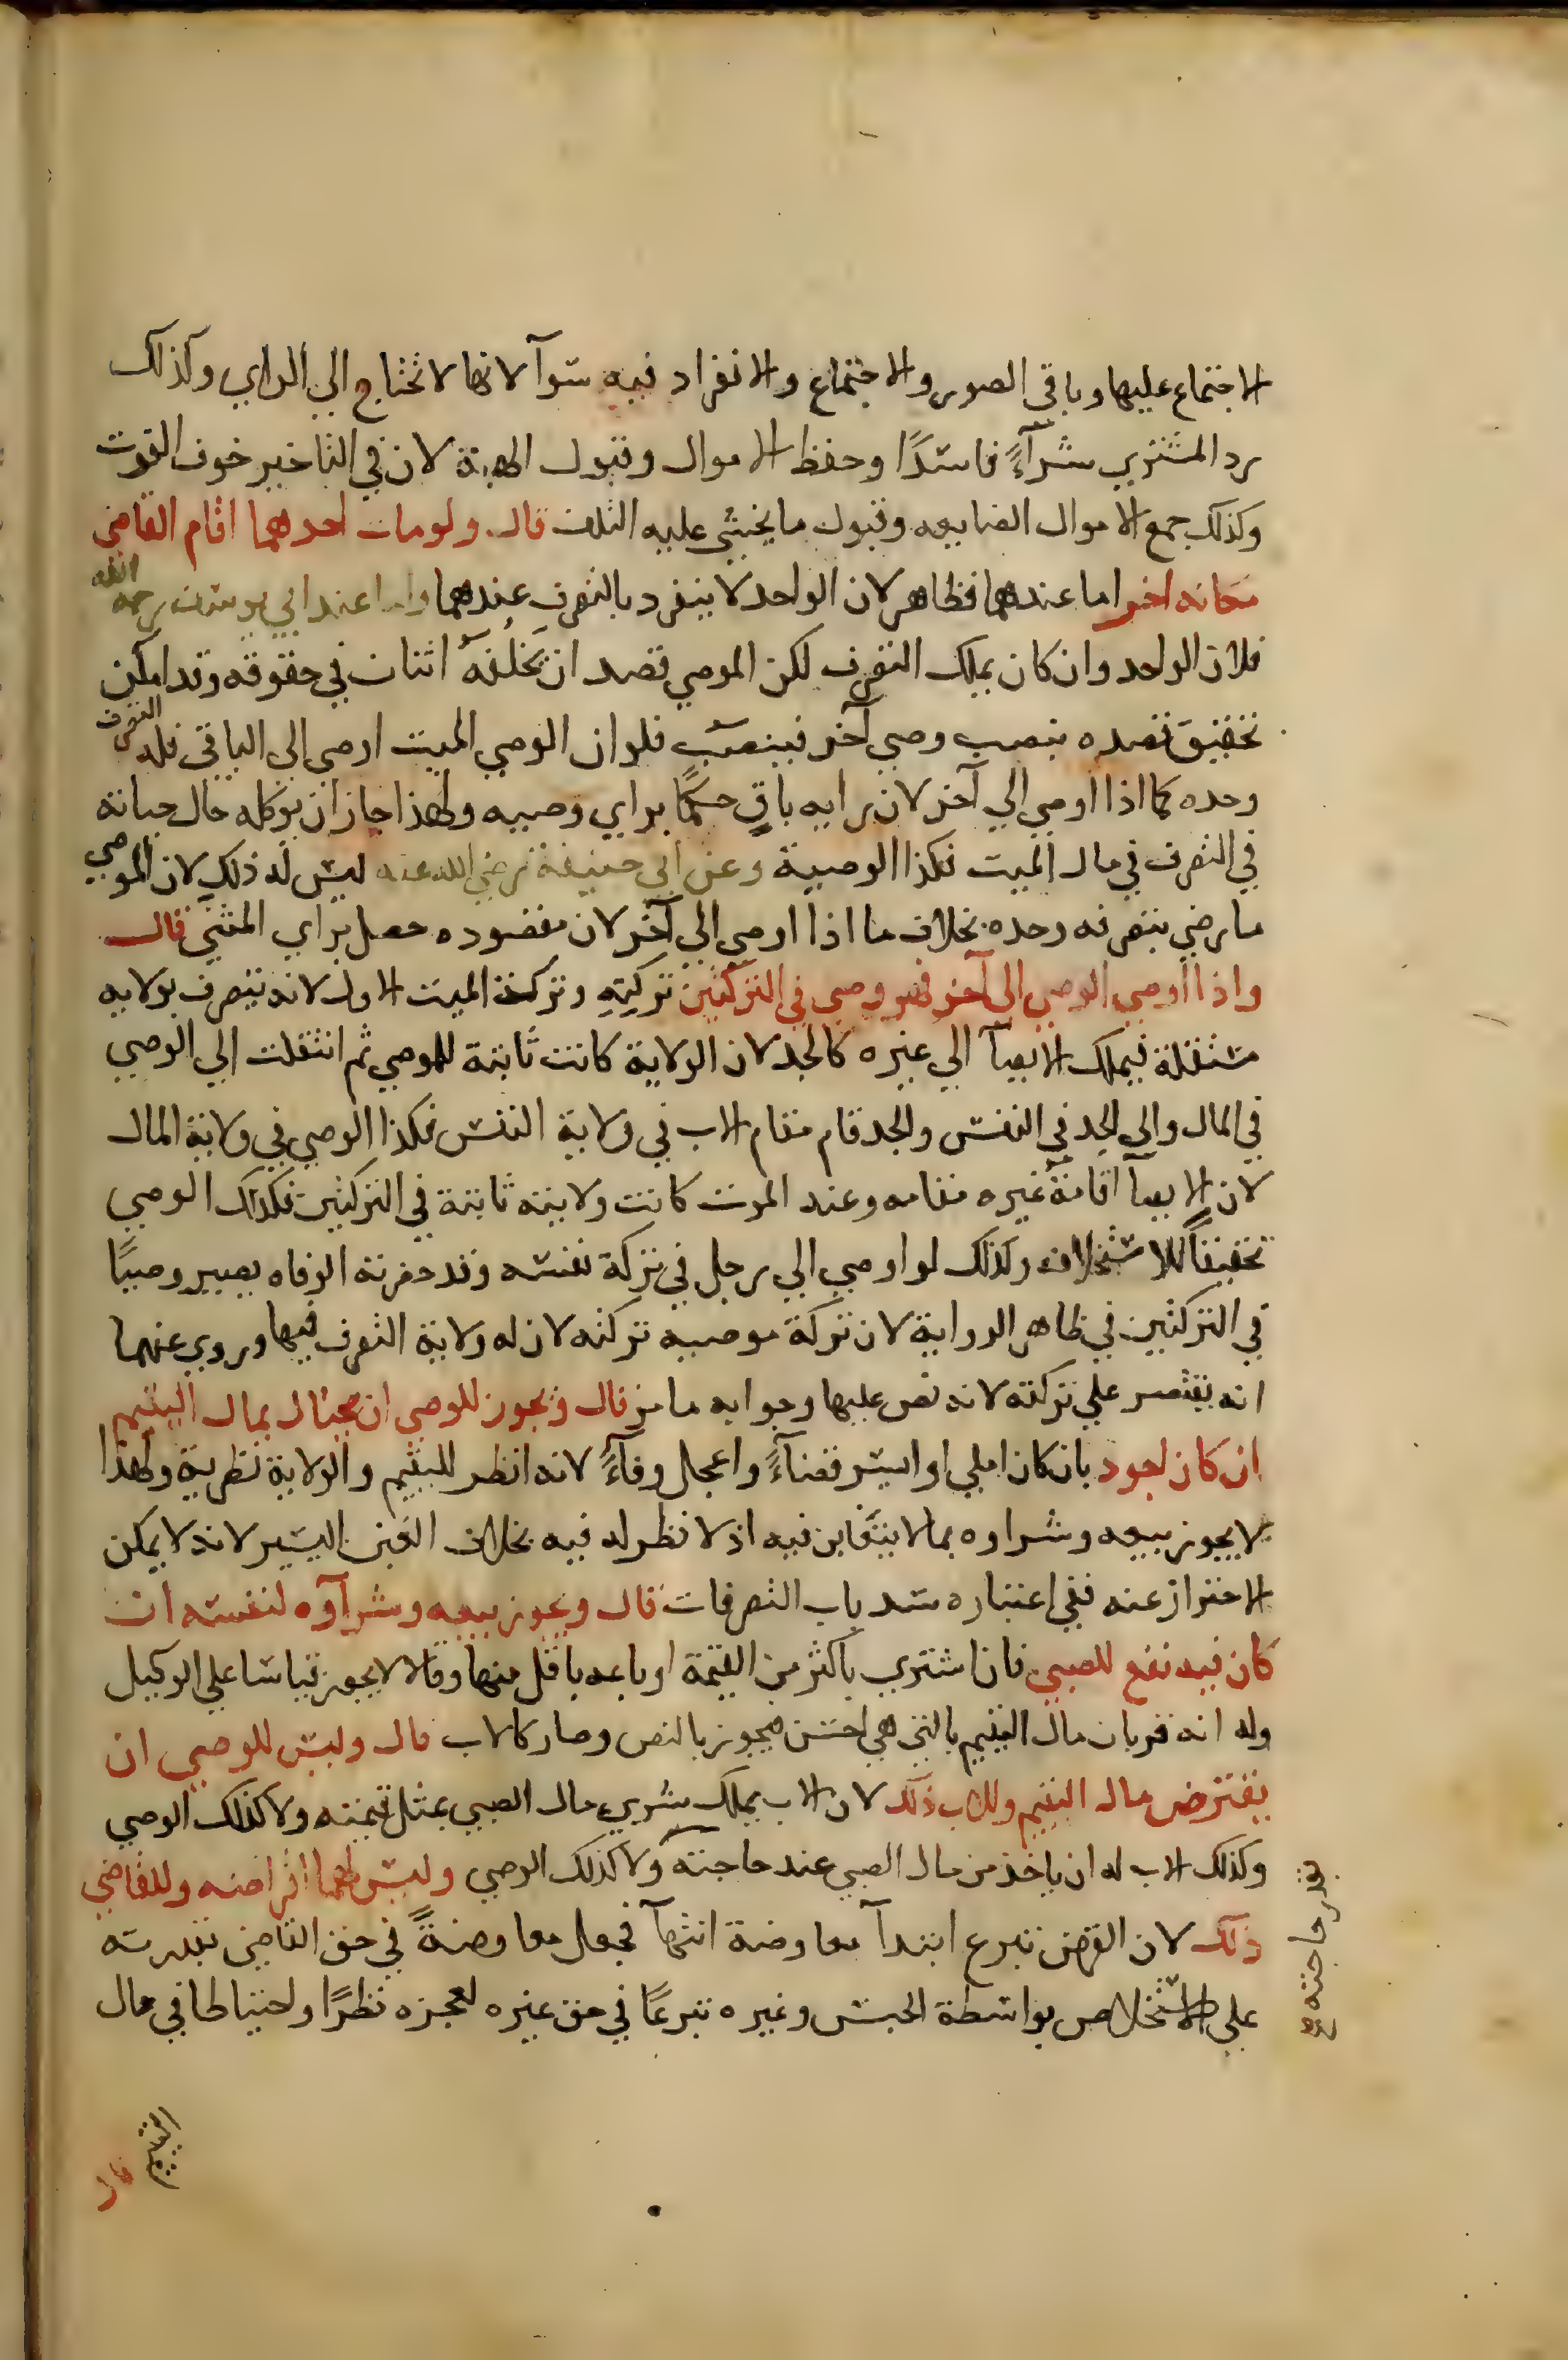 الاجتماع عليها وباقي الصور والاجتماع والانفراد فيه سوآ لانها لا تحتاج الي الراي وكذلك
رد المشتري شرآءً فاسدًا وحفظ الاموال وقبول الهبة لان في التاخير خوف الفوت
وكذلك جمع الاموال الضايعه وقبول ما يخشي عليه التلف قال ولو مات احدهما اقام القاضي
مكانه اخر اما عندهما فظاهر لان الواحد لا ينفرد بالتصرف عندهما واما عند ابي يوسف رحمه الله
فلان الواحد وان كان يملك التصرف لكن الموصي قصد ان يخلفه اثنان في حقوقه وقد امكن
تحقيق قصده بنصب وصي آخر فينصب فلو ان الوصي الميت اوصي الى الباقي فله التصرف
وحده كما اذا اوصي الي آخر لان رايه باقٍ حكمًا براي وصيه ولهذا جاز ان يوكله حال حياته
في التصرف في مال الميت فكذا الوصية وعن ابي حنيفة رضي الله عنه ليس له ذلك لان الموصي
ما رضي بتصرفه وحده بخلاف ما اذا اوصي الي آخر لان مقصوده حصل براي المثني قال
واذا اوصي الوصي الى آخر فهو وصي في التركتين تركته وتركة الميت الاول لانه يتصرف بولايه
منتقلة فيملك الايصآ الي غيره كالجد لان الولاية كانت ثابتة للموصي ثم انتقلت الي الوصي
في المال والي الجد في النفس والجد قام مقام الاب في ولاية النفس فكذا الوصي في ولاية المال
لان الايصآ اقامة غيره مقامه وعند الموت كانت ولايته ثابتة في التركتين فكذلك الوصي
تحقيقاً للاستخلاف وكذلك لو اوصي الي رجل في تركة نفسه وقد حضرته الوفاه يصير وصيًا
في التركتين في ظاهر الرواية لان تركة موصيه تركته لان له ولاية التصرف فيها وروي عنهما
انه يقتصر علي تركته لانه نص عليها وجوابه ما مر قال ويجوز للوصي ان يحتال بمال اليتيم
ان كان اجود بان كان املي او ايسر قضآءً واعجل وفآءً لانه انظر لليتيم والولاية نظرية ولهذا
لا يجوز بيعه وشراوه بما لا يتغابن فيه اذ لا نظر له فيه بخلاف الغبن اليسير لانه لا يمكن
الاحتراز عنه ففي اعتباره سد باب التصرفات قال ويجوز بيعه وشرآوه لنفسه ان
كان فيه نفع للصبي فان اشتري باكثر من القيمة او باعه باقل منها وقالا لا يجوز قياسا علي الوكيل
وله انه قربان مال اليتيم بالتي هي احسن فيجوز بالنص وصار كالاب قال وليس للوصي ان
يقترض مال اليتيم وللاب ذلك لان الاب يملك شري مال الصبي بمثل قيمته ولا كذلك الوصي
وكذلك الاب له ان ياخذ من مال الصبي عند حاجته ولا كذلك الوصي وليس لهما اقراضه وللقاضي
بقدر حاجته صح
ذلك لان القرض تبرع ابتدآ معاوضة انتهآ فجعل معاوضةً في حق القاضي لقدرته
علي الاستخلاص بواسطة الحبس وغيره تبرعًا في حق غيره لعجزه نظرًا واحتياطا في مال
اليتيم
قال